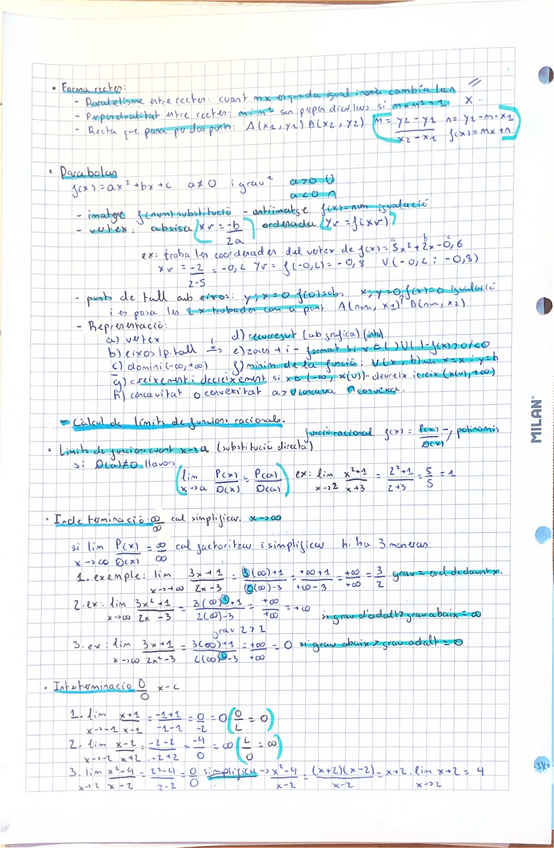 · Forma rectes:
- Paralelisme entre rectes: quant mx es queda igual i nomes cambia la n
- Perpendicualitat entre rectes: m i m' son perpendiculars si m x m' = -1
- Recta que passa per dos punts: A(x1, y1) B(x2, y2) (m = y2-y1 / x2-x1 n = y1-m·x1 f(x)=mx+n)
· Parabolas
f(x)=ax²+bx+c a≠0 i grau² a>0 U
a<0 ∩
- imatge f(num) substitució - antiimatge f(x)=num igualació
- vertex: absisa (xv = -b/2a) ordenada (yv = f(xv))
ex: troba les coordenades del vertex de f(x)=5x²+2x-0,6
xv = -2/2·5 = -0,2 yv = f(-0,2) = -0,8 V(-0,2; -0,8)
- punts de tall amb eixos: y; x=0 f(0) subs, x; y=0 f(x)=0 igualació
i es posa les 2 x trobades com a punt A(num, x1) i B(num, x2)
- Representació:
a) vertex d) recorregut (ab grafica) (im)
b) eixos i p. tall
c) domini (-∞, +∞)
h) concavitat o convexitat a>U concava ∩ convexa.
- Càlcul de límits de funcions racionals.
funció racional f(x) = P(x)/Q(x) -, polinomis
· Límits de funcion quant x→a (substitució directa)
si Q(a)≠0 llavors (lim x→a P(x)/Q(x) = P(a)/Q(a)) ex: lim x→2 x²+1/x+3 = 2²+1/2+3 = 5/5 = 1
· Indeterminació ∞/∞ cal simplificar. x→∞
si lim x→∞ P(x)/Q(x) = ∞/∞ cal factoritzar i simplificar hi ha 3 maneras:
1. exemple: lim x→∞ 3x+1/2x-3 = 3(∞)+1/2(∞)-3 = +∞+1/+∞-3 = +∞/+∞ = 3/2
2. ex: lim x→∞ 3x²+1/2x-3 = 3(∞)²+1/2(∞)-3 = +∞/+∞ = +∞ si grau d'adalt > grau abaix = ∞
grau 2>1
3. ex: lim x→∞ 3x+1/2x²-3 = 3(∞)+1/2(∞)²-3 = +∞/+∞ = 0 si grau abaix > grau adalt = 0
· Inteterminacio 0/0 x-c
1. lim x→-1 x+1/x-1 = -1+1/-1-1 = 0/-2 = 0 (0/L = 0)
2. lim x→-2 x-2/x+2 = -2-2/-2+2 = -4/0 = ∞ (L/0 = ∞)
3. lim x→2 x²-4/x-2 = 2²-4/2-2 = 0/0 simplificar → x²-4/x-2 = (x+2)(x-2)/x-2 = x+2. lim x→2 x+2 = 4
MILAN